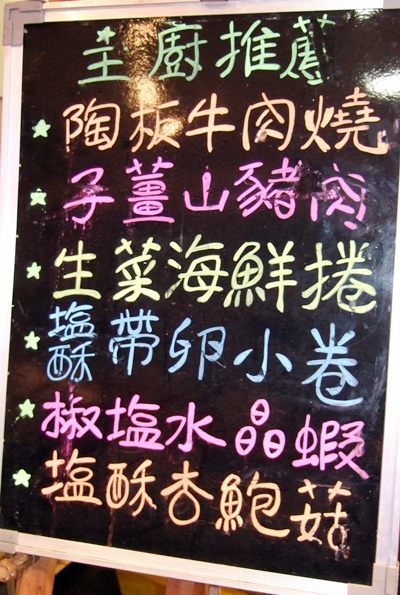 主廚推薦
陶板牛肉燒
子薑山豬肉
生菜海鮮捲
塩酥帶卵小卷
椒塩水晶蝦
塩酥杏鮑菇